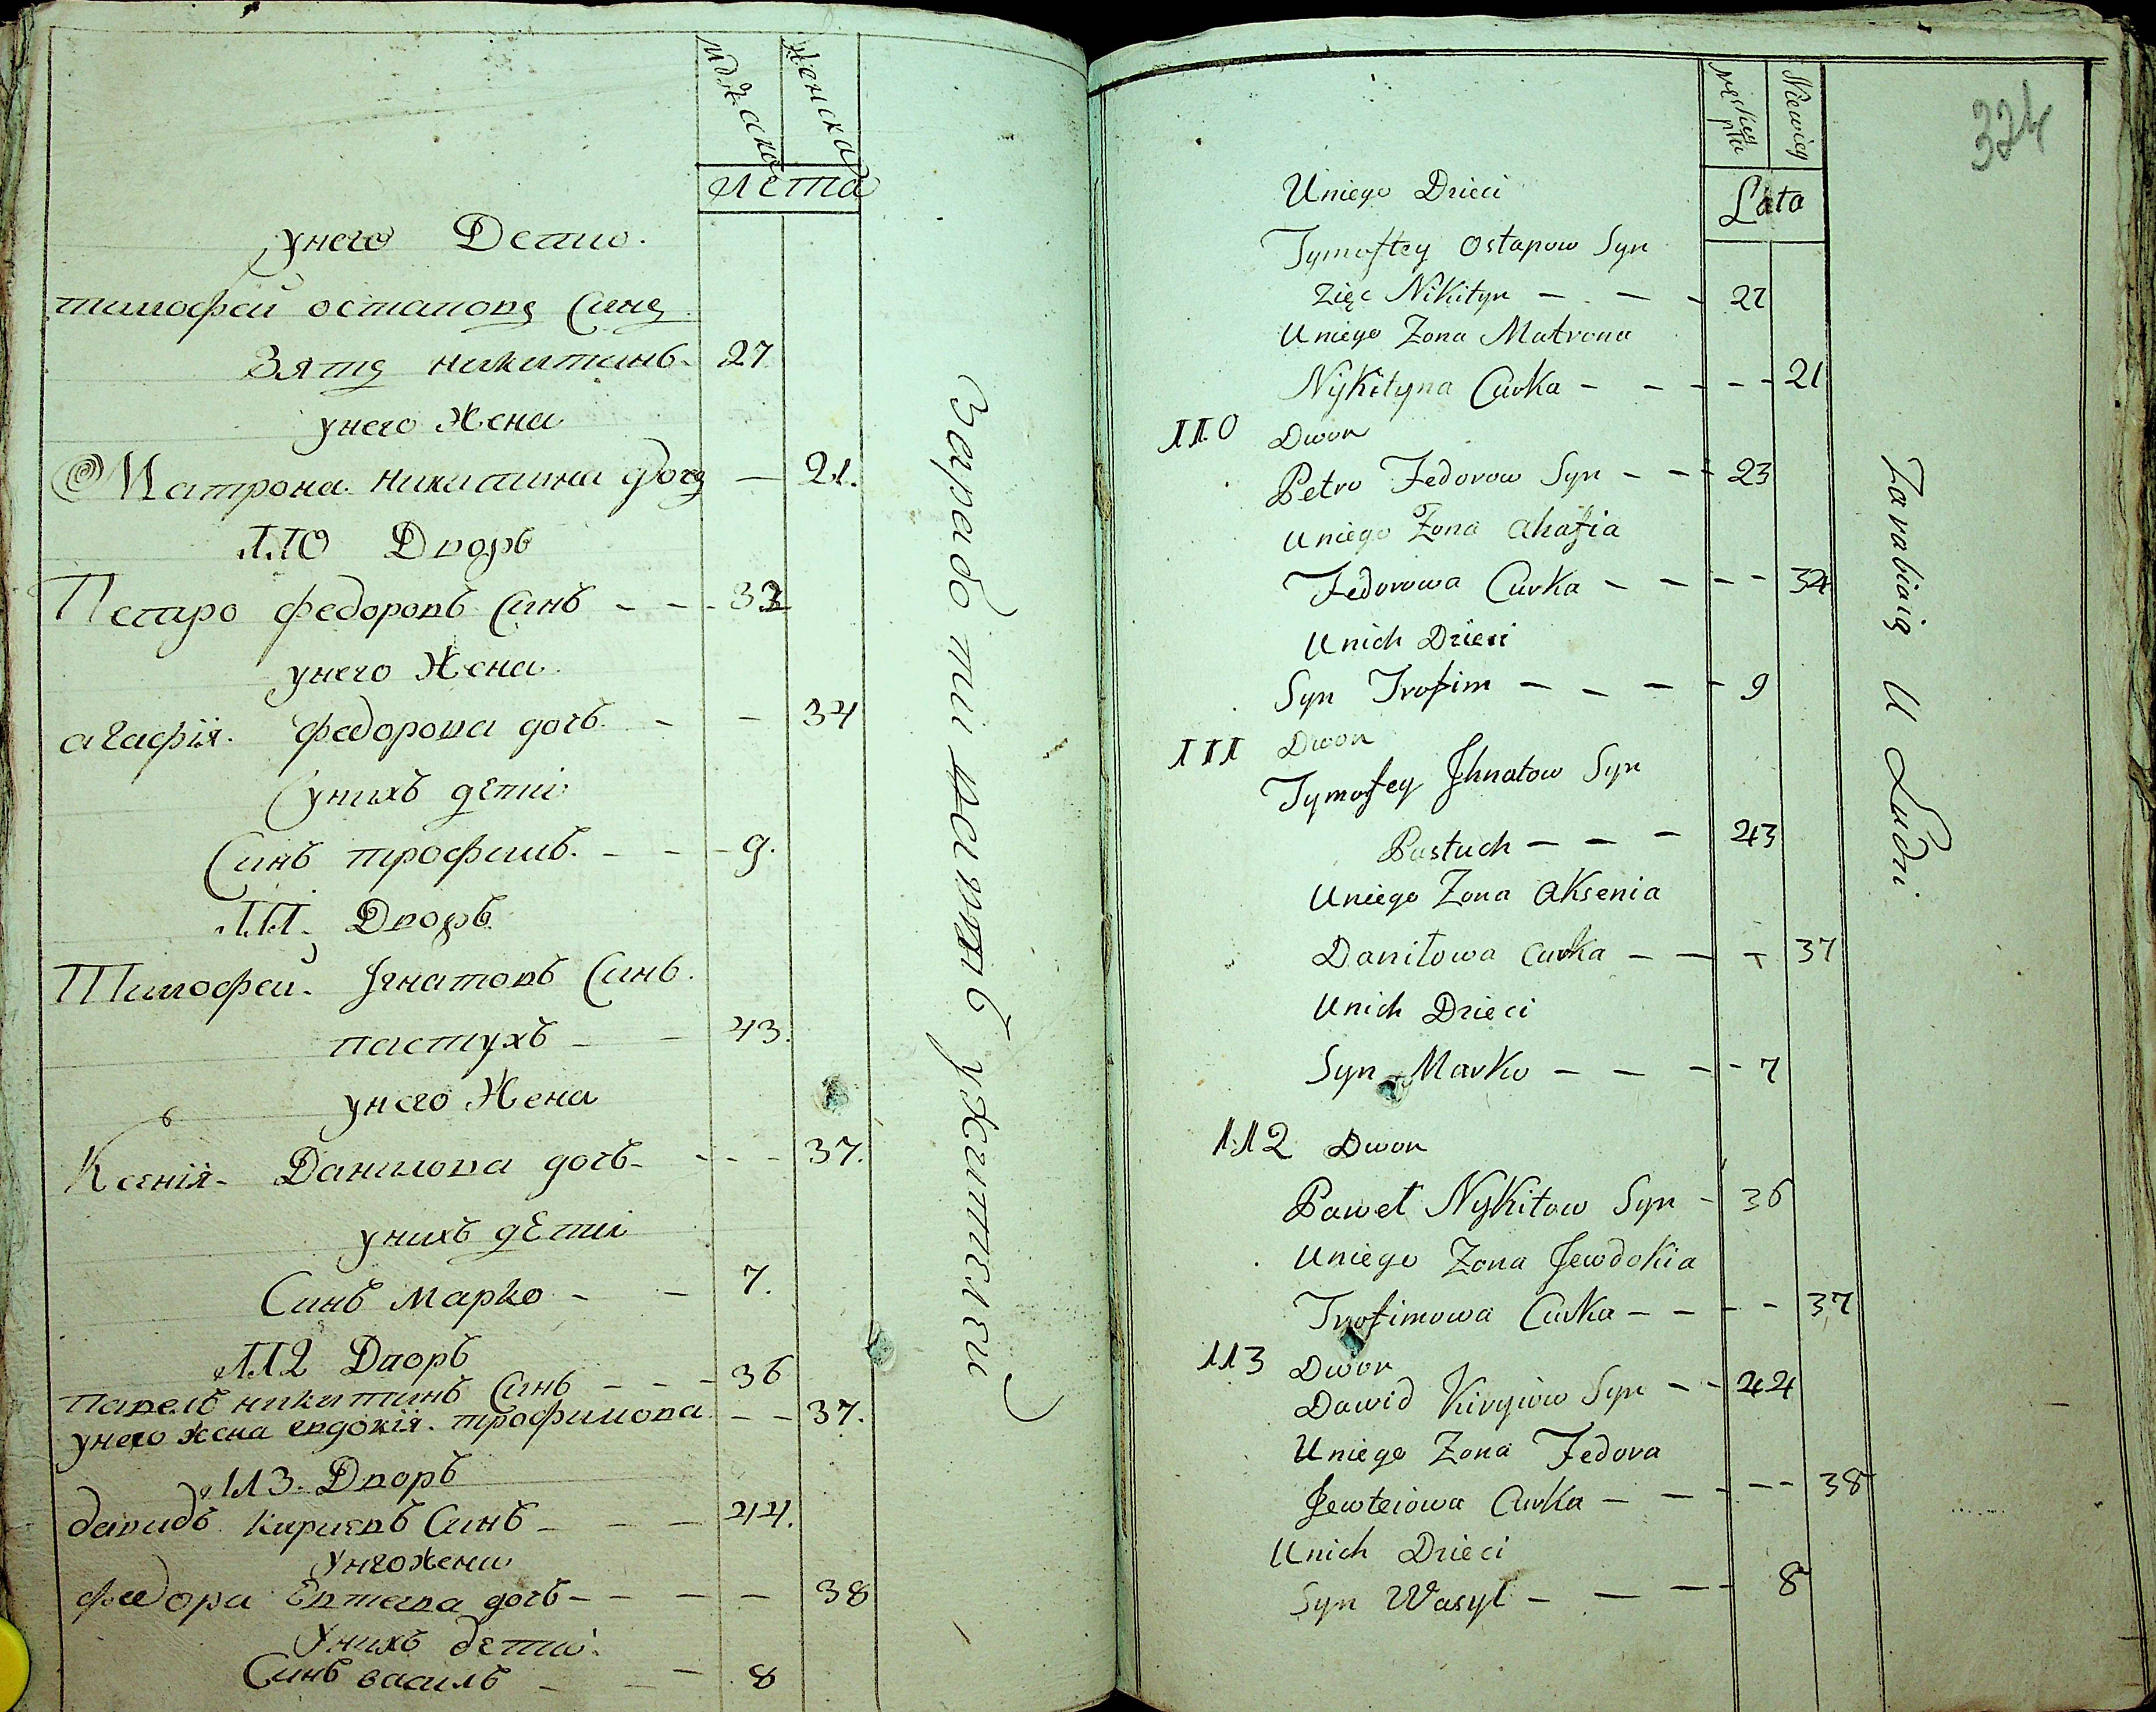 мужеска
женска
лета
унего Детио.
тимофей остаповъ Синъ
Зятъ никитинъ 27
унего Жена
Матрона никитина дочъ — 21.
110 Дворъ
Петро федоровъ Синъ - - - 33
унего Жена
агафія. федорова дочъ - - 34
унихъ дѣтии
Синъ трофимъ. - - - 9.
111. Дворъ
Тимофей Јгнатовъ Синъ.
пастухъ - - 43.
унего Жена
Ксенія - Данилова дочъ - - - - 37.
унихъ дѣтии
Синъ марко - - 7.
112 Дворъ
павелъ никитинъ Синъ - - - 36
унего жена евдокія. трофимова - - 37.
113. Дворъ
давидъ кириевъ Синъ - - - 44.
унегожена
федора Евтеева дочъ - - - - 38
Унихъ детии.
Синъ василъ - - - 8
жителми
324
Męskiey płci
Niewieś
Lata
Uniego Dzieci
Tymoftey Ostapow Syn
Zięc Nikityn - - - 27
Uniego Zona Matrona
Nykityna Curka - - - - - 21
110 Dwor
Petro Fedorow Syn - - - 23
Uniego Zona Ahafia
Fedorowa Curka - - - - 34
Unich Dzieci
Syn Trofim - - - - 9
111 Dwor
Tymofey Jhnatow Syn
Pastuch - - - 43
Uniego Zona Aksenia
Daniłowa Curka - - - 37
Unich Dzieci
Syn Marko - - - - 7
112 Dwor
Paweł Nykitow Syn - 36
Uniego Zona Jewdokia
Trofimowa Curka - - - - 37
113 Dwor
Dawid Kiryiow Syn - - 44
Uniego Zona Fedora
Jewteiowa Curka - - - - - 38
Unich Dzieci
Syn Wasyl - - - - 8
Zarabiaią U Ludzi.